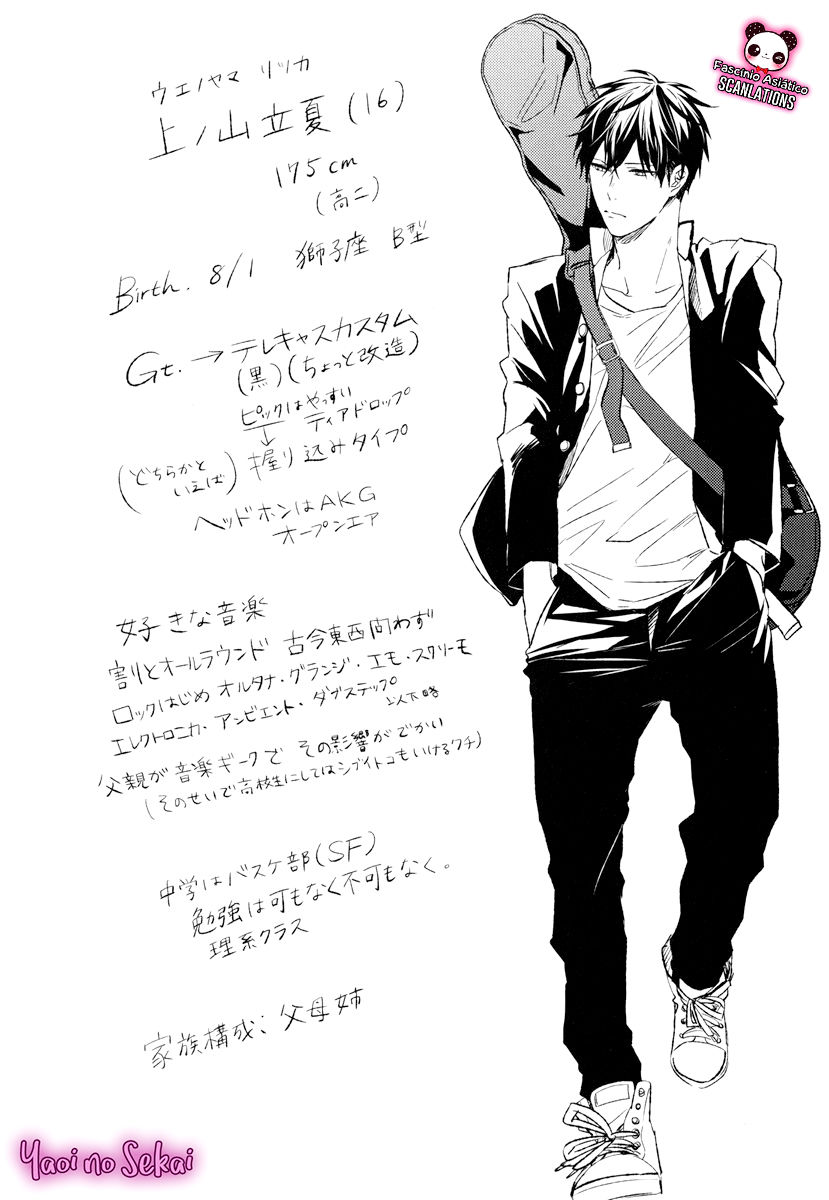 Fascínio Asiático
SCANLATIONS
ウエノヤマ リツカ
上ノ山立夏(16)
175cm
(高二)
Birth. 8/1 獅子座 B型
Gt. → テレキャスカスタム
(黒)(ちょっと改造)
ピックはやっすい
ティアドロップ
↓
(どちらかと
いえば)
握り込みタイプ
ヘッドホンはAKG
オープンエア
好きな音楽
割りとオールラウンド 古今東西問わず
ロックはじめオルタナ・グランジ・エモ・スクリーモ
エレクトロニカ・アンビエント・ダブステップ
以下略
父親が音楽ギークで その影響がでかい
(そのせいで高校生にしてはシブイトコもいけるクチ)
中学はバスケ部(SF)
勉強は可もなく不可もなく。
理系クラス
家族構成: 父母姉
Yaoi no Sekai